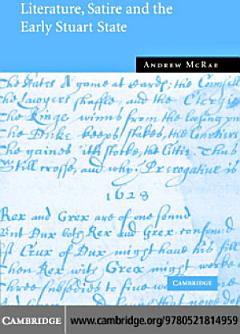 Literature, Satire and the
Early Stuart State
ANDREW MCRAE
The States a game at Cards, the
The Lawyers shuffle and the
The Kinge winns from the
The Duke keeps stakes, the
the gaines
still crosse, and why; Prerogative is
1628
Rex and Grex are of one sound
But Dux doth Rex and Grex confound
If Crux of Dux might have his fill
Then Rex with Grex might
three subjects
CAMBRIDGE
CAMBRIDGE
www.cambridge.org/9780521814959